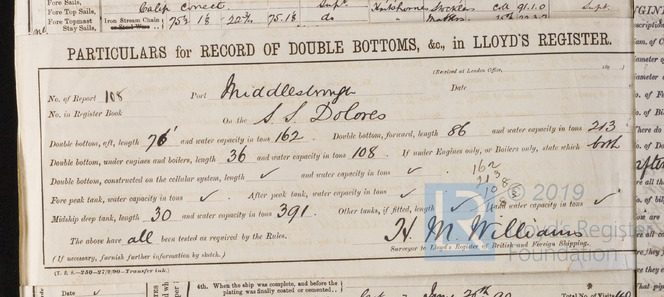 Fore Sails,
Fore Top Sails,
Fore Topmast
Stay Sails,
Iron Stream Chain
75 1⅛
75.1⅛
do
PARTICULARS for RECORD OF DOUBLE BOTTOMS, &c., in LLOYD'S REGISTER.
(Received at London Office, 189 )
No. of Report 108 Port Middlesbrough Date
No. in Register Book On the S. S. Dolores
Double bottom, aft, length 76' and water capacity in tons 162. Double bottom, forward, length 86 and water capacity in tons 213
Double bottom, under engines and boilers, length 36 and water capacity in tons 108. If under Engines only, or Boilers only, state which both
Double bottom, constructed on the cellular system, length ✓ and water capacity in tons ✓.
162
213
108
Fore peak tank, water capacity in tons ✓. After peak tank, water capacity in tons ✓.
Midship deep tank, length 30 and water capacity in tons 391. Other tanks, if fitted, length ✓ and water capacity in tons ✓
The above have all been tested as required by the Rules. H M Williams
Surveyor to Lloyd's Register of British and Foreign Shipping.
(If necessary, furnish further information by sketch.)
(T. & S.—250—27/2/90—Transfer ink.)
© 2019
Lloyd's Register
Foundation
Date ✓
4th. When the ship was complete, and before the
plating was finally coated or cemented..
Total No. of Visits